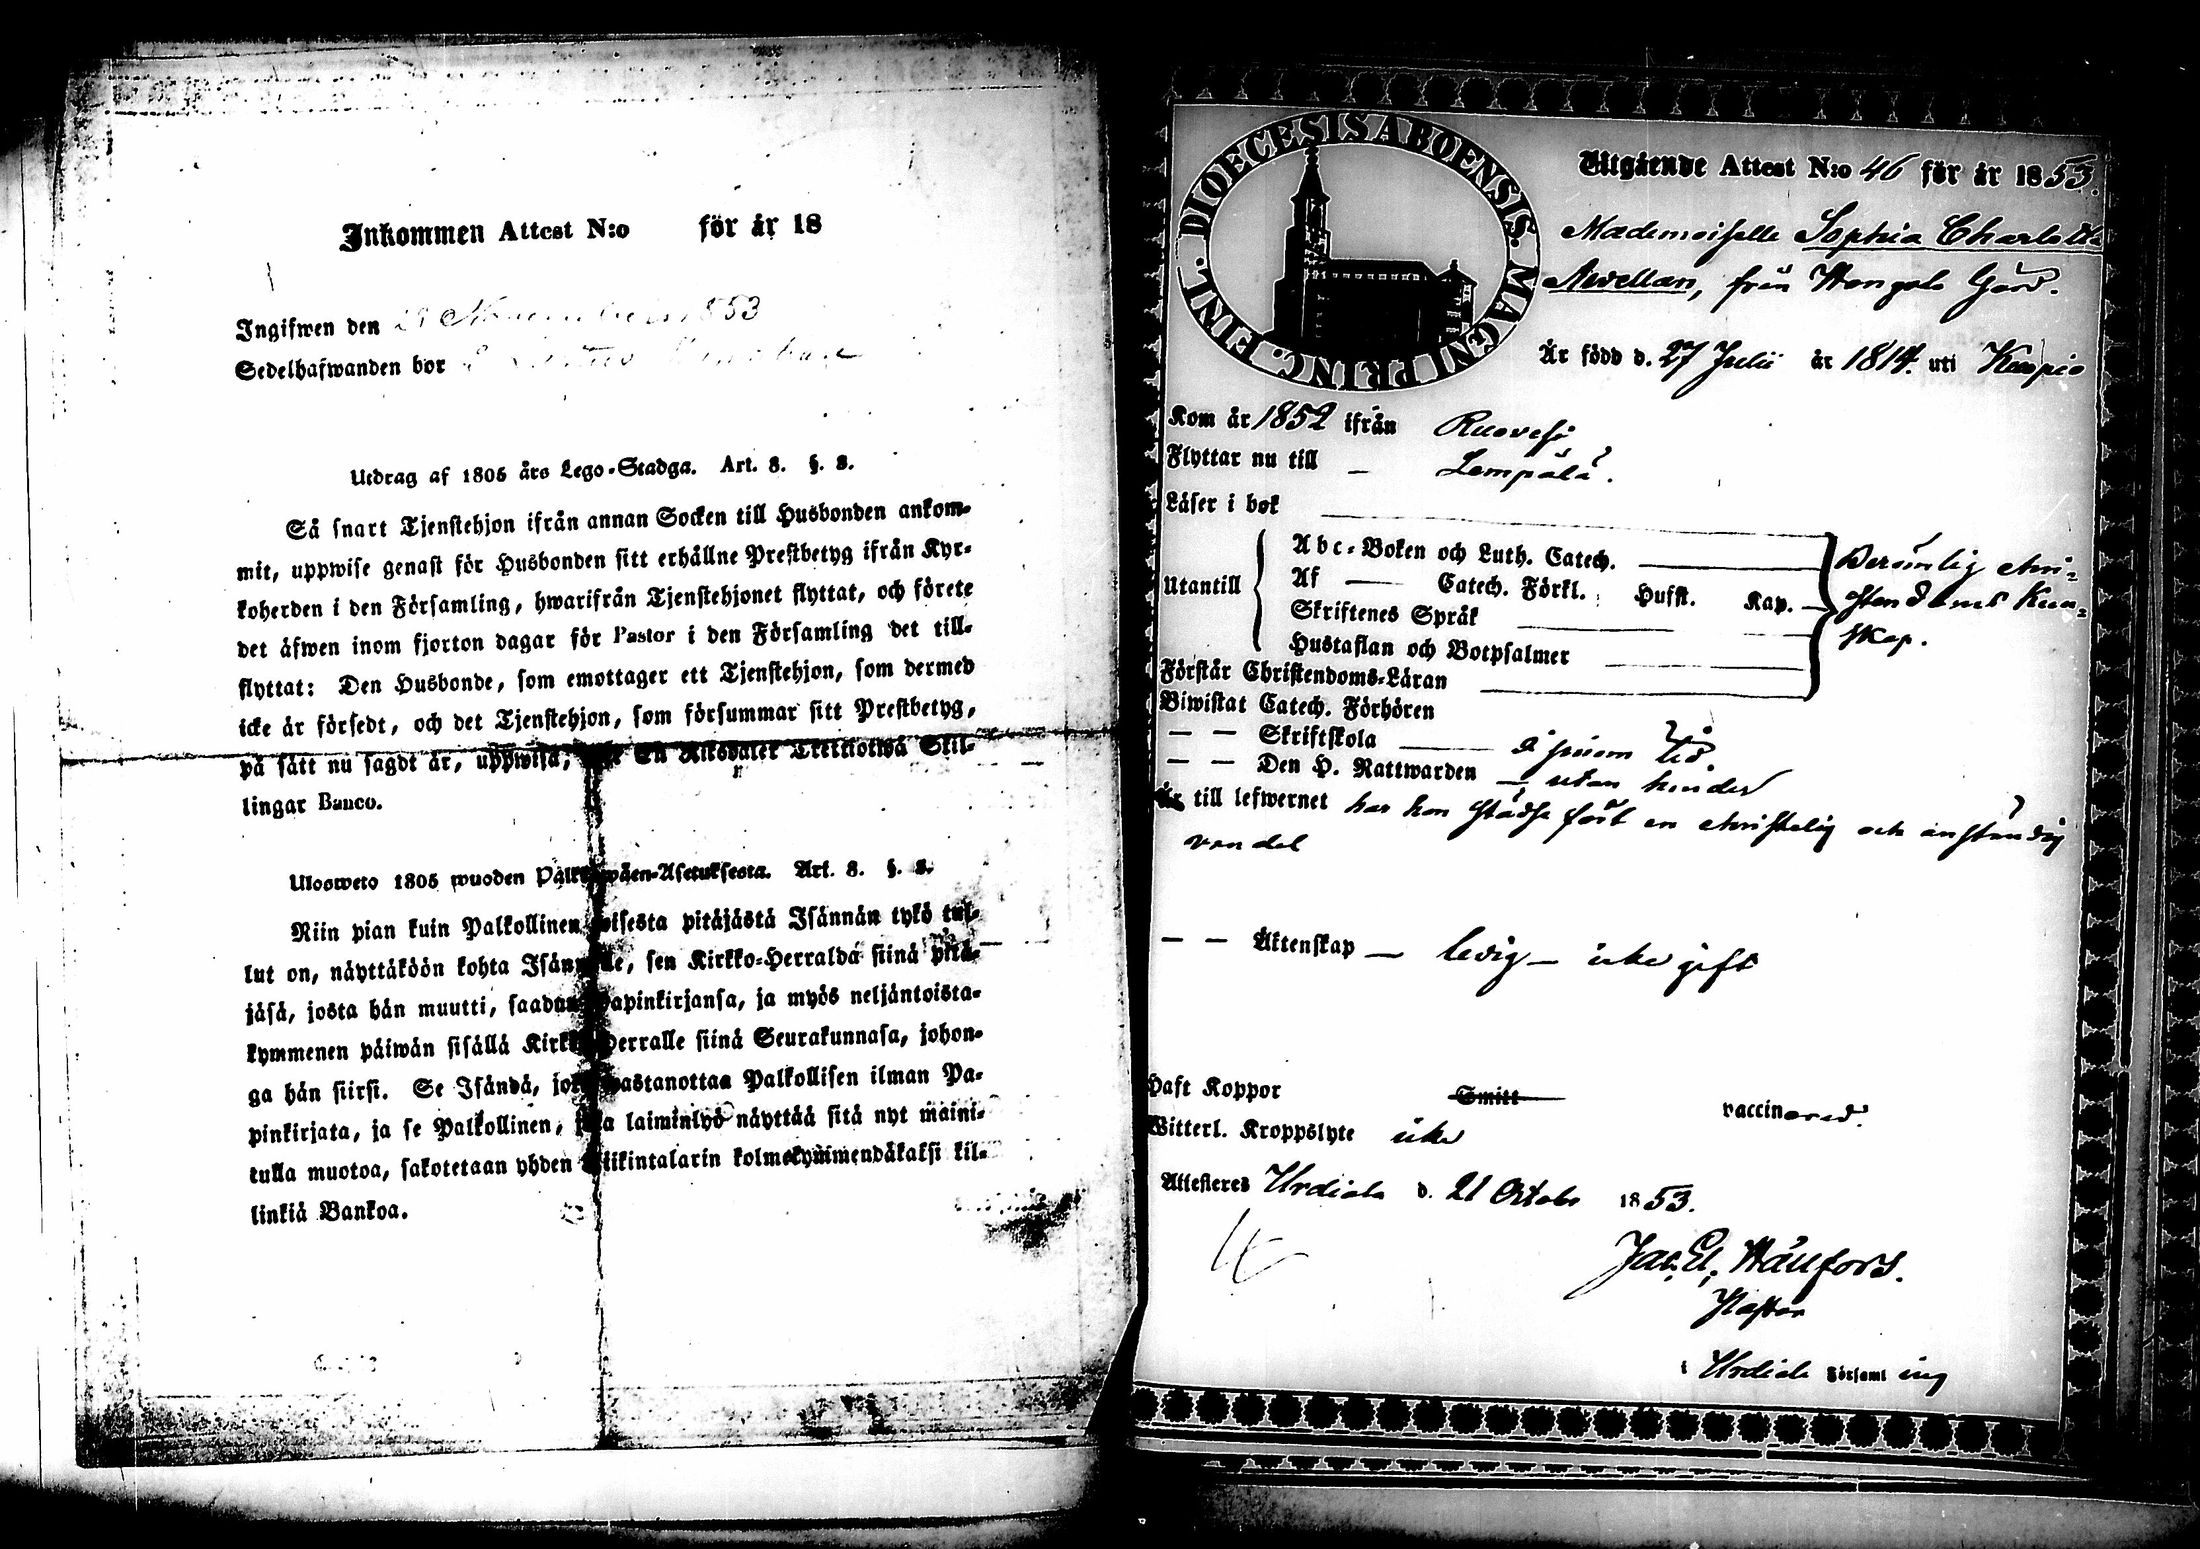 Inkommen Attest N:o för år 18
Ingifwen den Novembris 1853
Sedelhafwanden bor
Utdrag af 1805 års Lego-Stadga. Art. 8. §. 8.
Så snart Tjenstehjon ifrån annan Socken till Husbonden ankom-
mit, uppwise genast för Husbonden sitt erhållne Prestbetyg ifrån Kyr-
koherden i den Församling, hwarifrån Tjenstehjonet flyttat, och förete
det äfwen inom fjorton dagar för Pastor i den Församling det till-
flyttat: Den Husbonde, som emottager ett Tjenstehjon, som dermed
icke är försedt, och det Tjenstehjon, som försummar sitt Prestbetyg,
på sätt nu sagdt är, uppwisa, En Riksdaler Trettiotwå Skil-
lingar Banco.
Ulosweto 1805 wuoden Palkowäen-Asetuksesta. Art. 8. §. 8.
Niin pian kuin Palkollinen toisesta pitäjästä Isännän tykö tul-
lut on, näyttäköön kohta Isännälle, sen Kirkko-Herralda siinä pitä-
jäsä, josta hän muutti, saadun Papinkirjansa, ja myös neljäntoista-
kymmenen päiwän sisällä Kirkko-Herralle siinä Seurakunnasa, johon-
ga hän siirsi. Se Isändä, joka wastanottaa Palkollisen ilman Pa-
pinkirjata, ja se Palkollinen, joka laiminlyö näyttää sitä nyt maini-
tulla muotoa, sakotetaan yhden Riikintalarin kolmekymmendäkaksi kil-
linkiä Bankoa.
DIOECESIS ABOENSIS. MAGNI PRINC. FINL.
Utgående Attest N:o 46 för år 1853.
Mademoiselle Sophia Charlotta
Avellan, från Wongola Gård.
Är född d. 27 Julii år 1814. uti Kuopio
Kom år 1852 ifrån Ruovesi
Flyttar nu till — Lempälä.
Läser i bok
Utantill
Abc-Boken och Luth. Catech.
Af Catech. Förkl. Husst. Kap.
Skriftenes Språk
Hustaflan och Botpsalmer
Förstår Christendoms-Läran
Berömlig chri-
stendoms kun-
skap.
Biwistat Catech. Förhören
— — Skriftskola å sinom tid.
— — Den H. Nattwarden — utan hinder
Är till lefwernet har hon städse fört en christelig och anständig
vandel
— — Äktenskap — ledig — icke gift
Haft Koppor Smitt vaccinerad.
Witterl. Kroppslyte icke
Attesteres Urdiala d. 21 Octobr 1853.
Jac. El. Hällfors.
Pastor
i Urdiala Församling